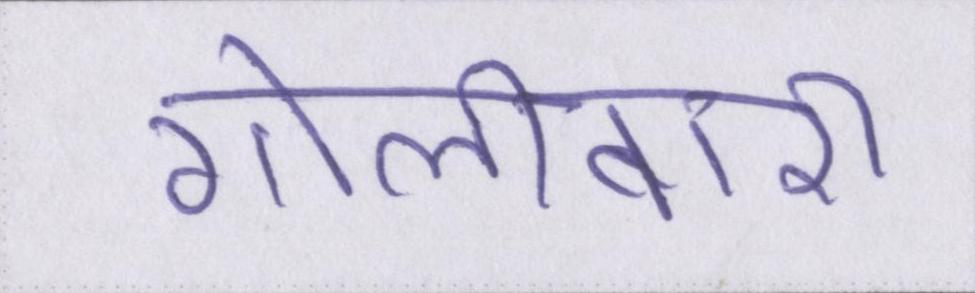 गोलीबारी